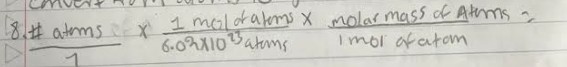 8. # atoms / 1 x 1 mol of atoms / 6.02x10^23 atoms x molar mass of Atoms / 1 mol of atom =